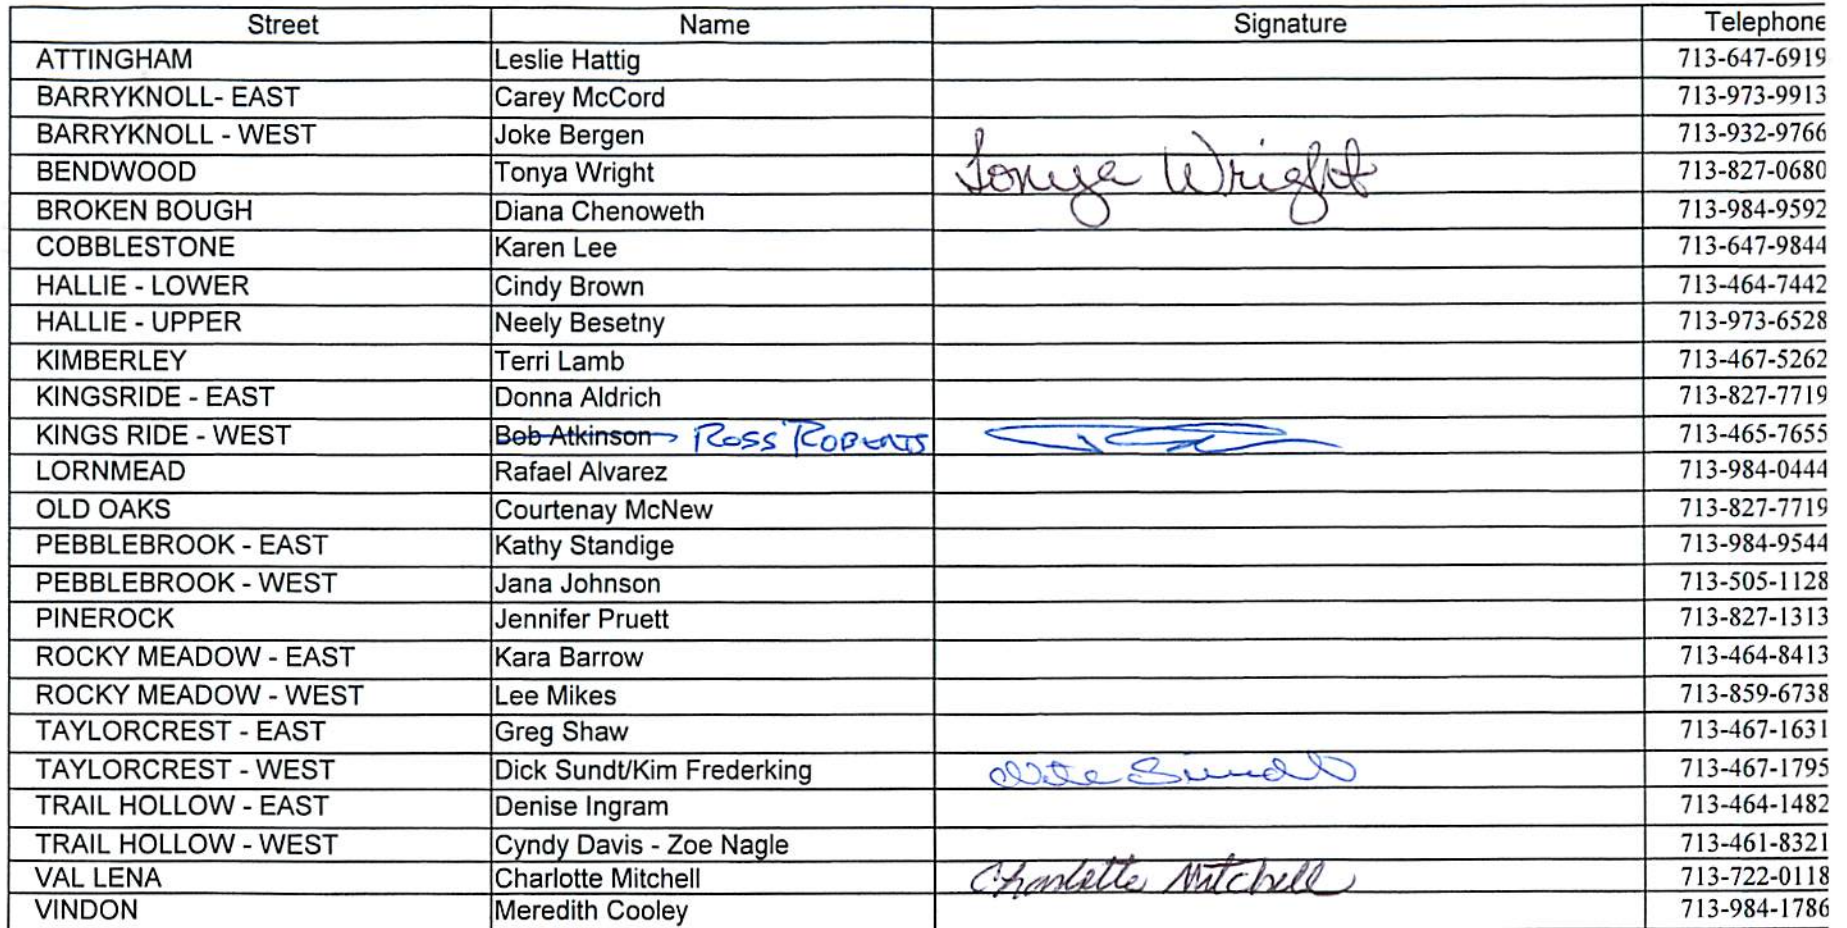 Street Name Signature Telephone
ATTINGHAM Leslie Hattig 713-647-6919
BARRYKNOLL- EAST Carey McCord 713-973-9913
BARRYKNOLL - WEST Joke Bergen 713-932-9766
BENDWOOD Tonya Wright Tonya Wright 713-827-0680
BROKEN BOUGH Diana Chenoweth 713-984-9592
COBBLESTONE Karen Lee 713-647-9844
HALLIE - LOWER Cindy Brown 713-464-7442
HALLIE - UPPER Neely Besetny 713-973-6528
KIMBERLEY Terri Lamb 713-467-5262
KINGSRIDE - EAST Donna Aldrich 713-827-7719
KINGS RIDE - WEST Bob Atkinson ROSS ROBERTS 713-465-7655
LORNMEAD Rafael Alvarez 713-984-0444
OLD OAKS Courtenay McNew 713-827-7719
PEBBLEBROOK - EAST Kathy Standige 713-984-9544
PEBBLEBROOK - WEST Jana Johnson 713-505-1128
PINEROCK Jennifer Pruett 713-827-1313
ROCKY MEADOW - EAST Kara Barrow 713-464-8413
ROCKY MEADOW - WEST Lee Mikes 713-859-6738
TAYLORCREST - EAST Greg Shaw 713-467-1631
TAYLORCREST - WEST Dick Sundt/Kim Frederking Sundt 713-467-1795
TRAIL HOLLOW - EAST Denise Ingram 713-464-1482
TRAIL HOLLOW - WEST Cyndy Davis - Zoe Nagle 713-461-8321
VAL LENA Charlotte Mitchell Charlotte Mitchell 713-722-0118
VINDON Meredith Cooley 713-984-1786